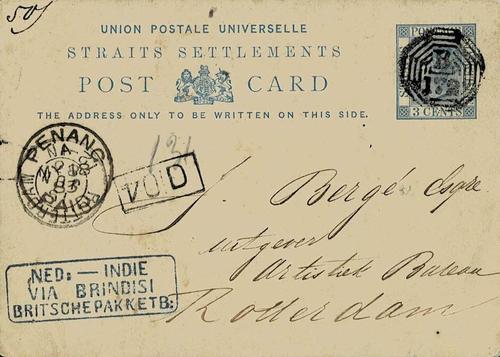 50
UNION POSTALE UNIVERSELLE
STRAITS SETTLEMENTS
POST CARD
THE ADDRESS ONLY TO BE WRITTEN ON THIS SIDE.
3 CENTS
B
172
PENANG
83
PAID
VOID
J. Bergé Esqre
uitgever
Artistiek Bureau
Rotterdam
NED: — INDIE
VIA BRINDISI
BRITSCHEPAKKETB: